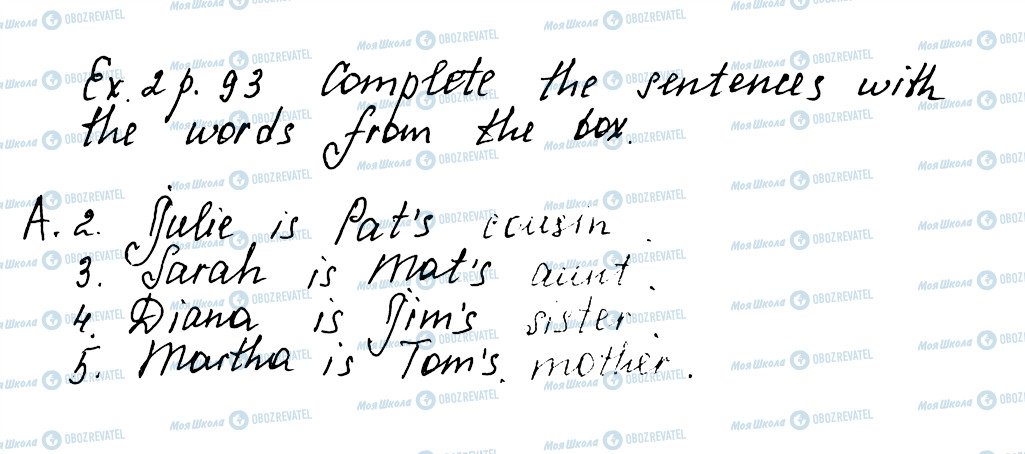 Ex. 2 p. 93 Complete the sentences with
the words from the box.
A. 2. Julie is Pat's cousin.
3. Sarah is Mat's aunt.
4. Diana is Jim's sister.
5. Martha is Tom's mother.